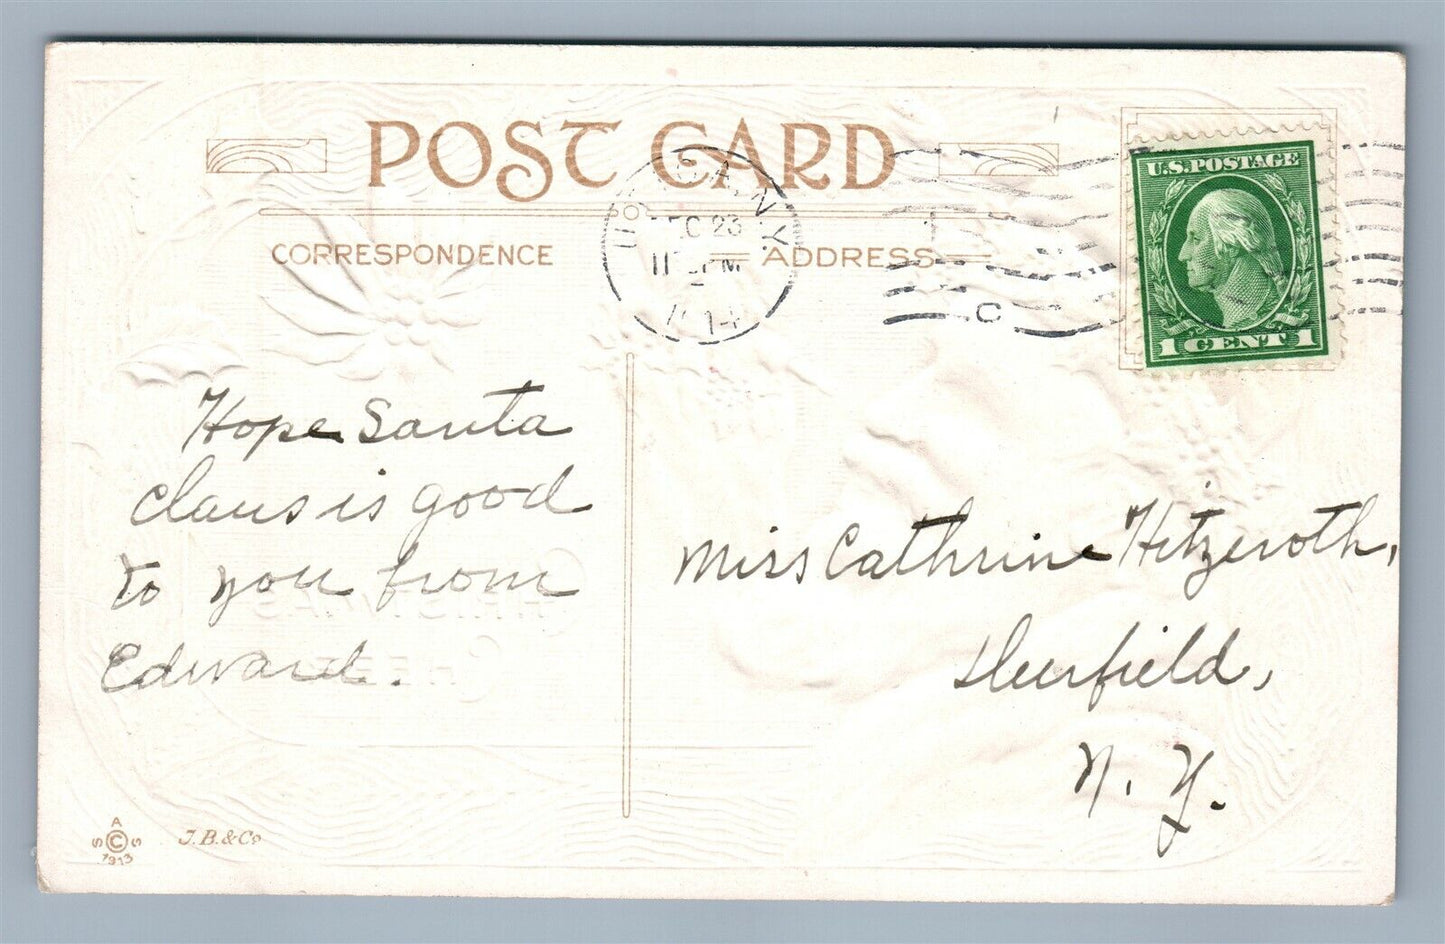 POST CARD
CORRESPONDENCE
ADDRESS
N.Y.
DEC 23
PM
1914
C
U.S. POSTAGE
1 CENT 1
Hope Santa
Claus is good
to you from
Edward.
Miss Cathrine Hitzeroth,
Deerfield,
N. Y.
A
S © S
1913
J.B.&Co